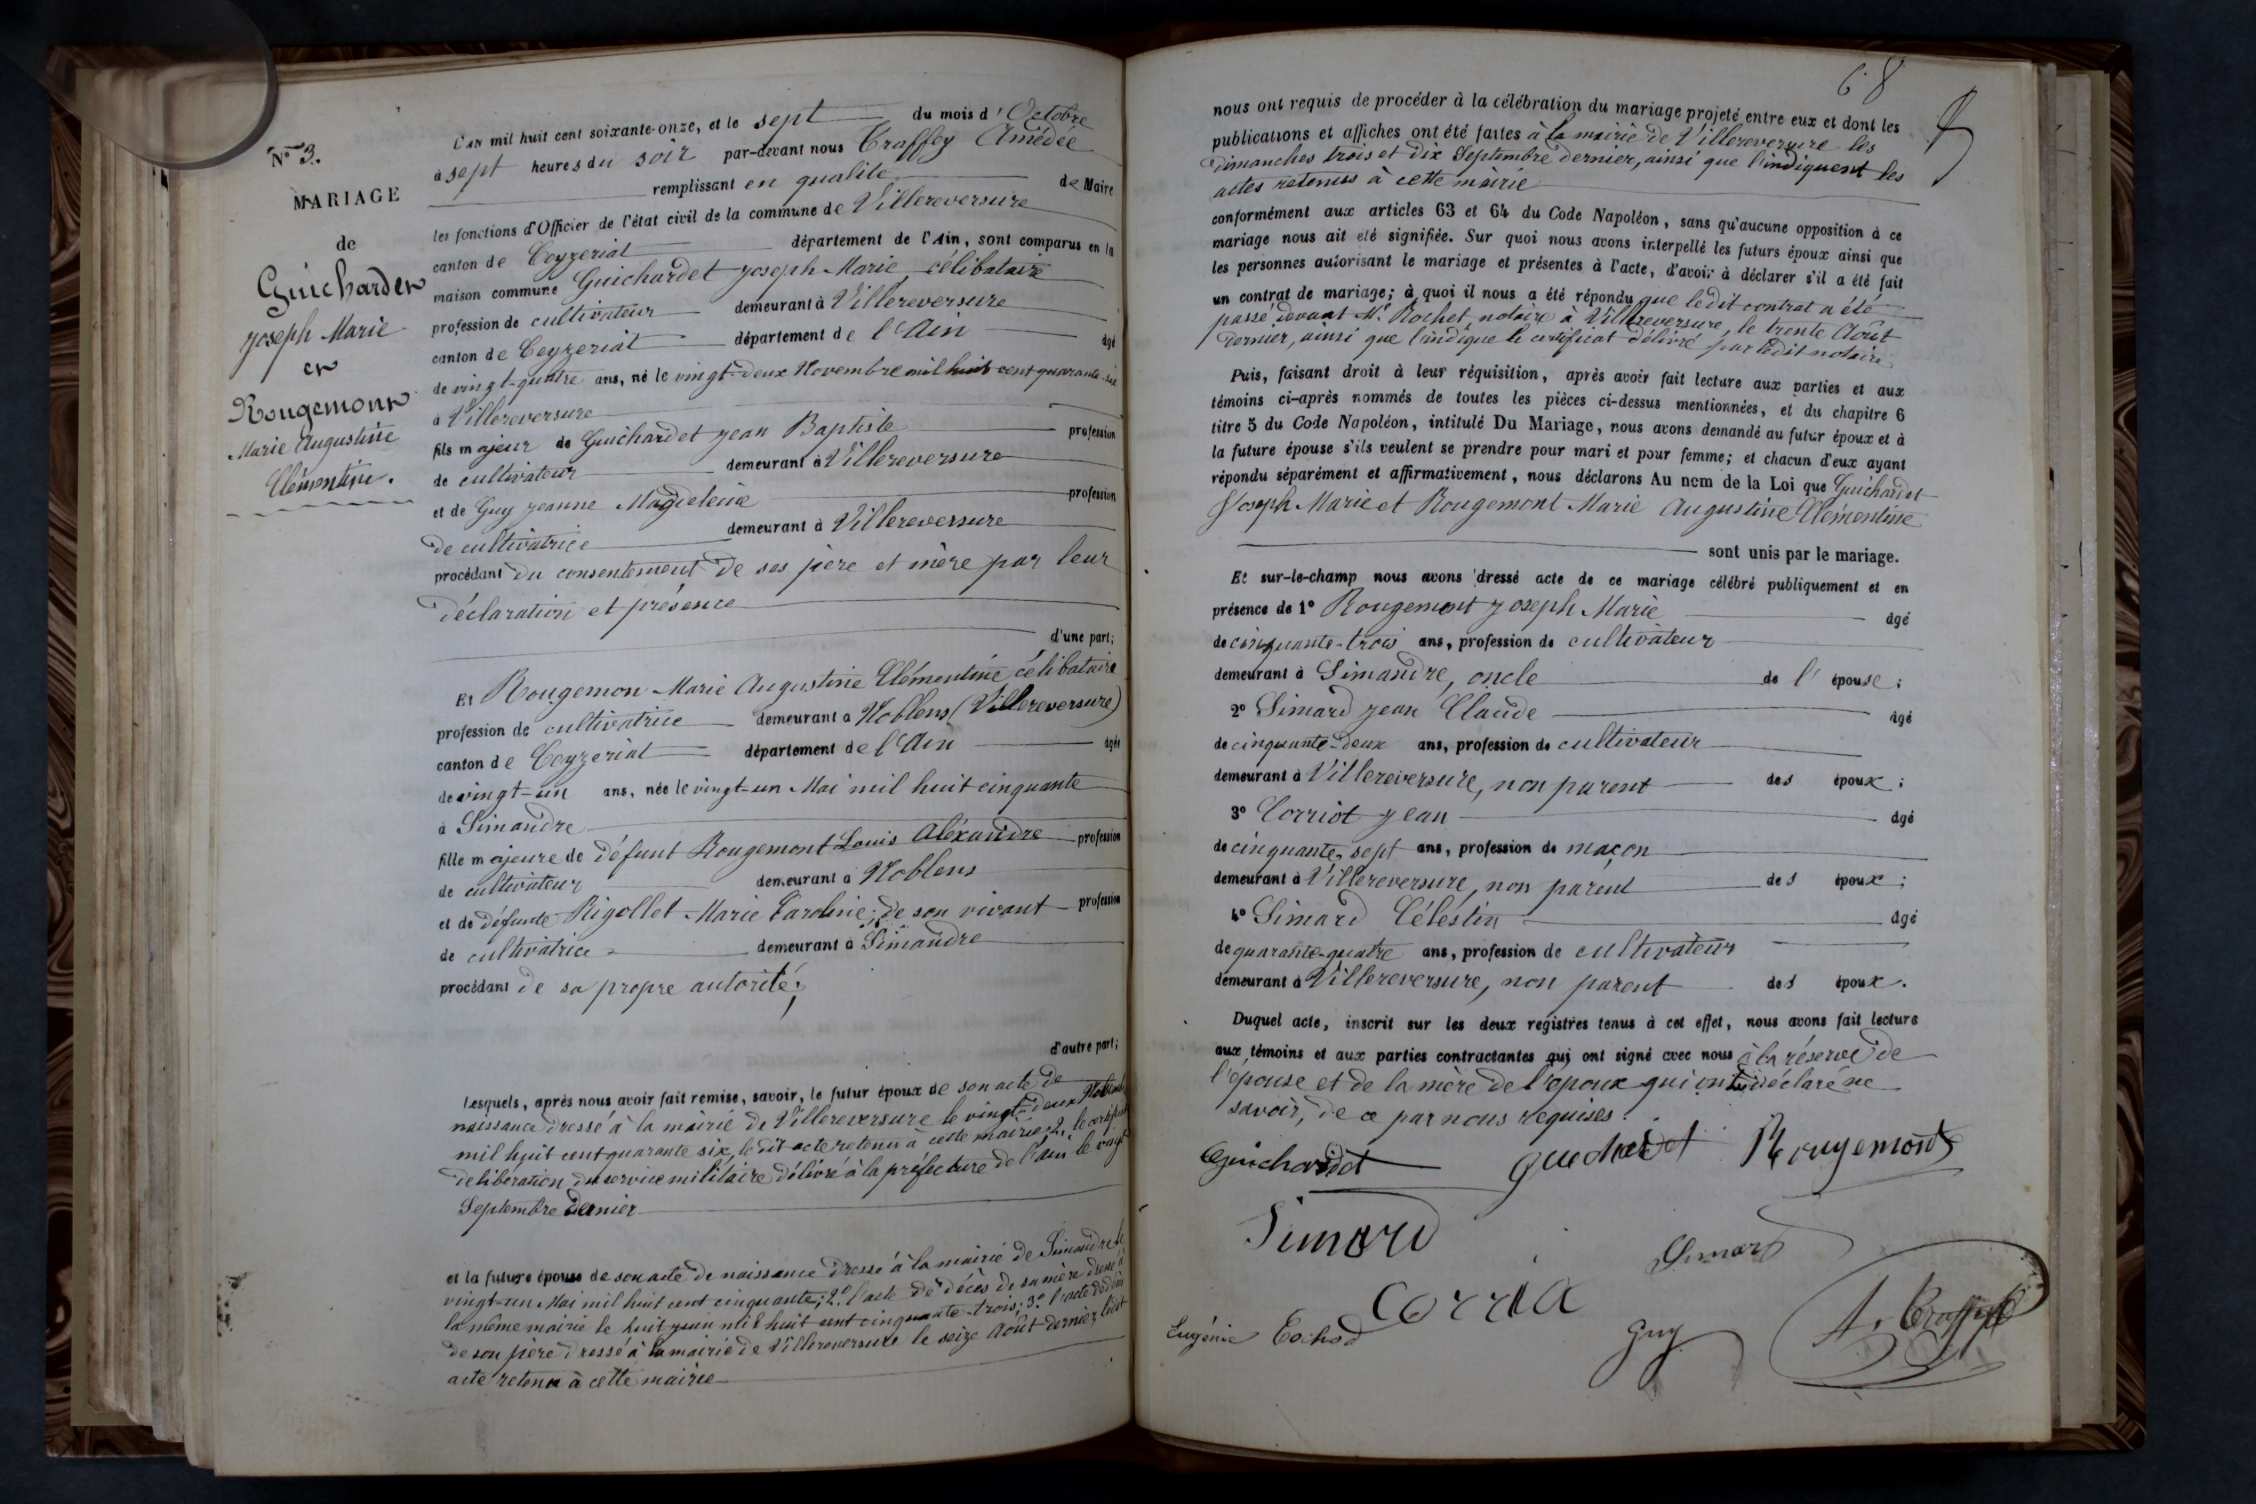 N° 3.
MARIAGE
de
Guichardet
Joseph Marie
et
Rougemont
Marie Augustine
Clémentine.
L'AN mil huit cent soixante-onze, et le sept du mois d'Octobre
à sept heures du soir par-devant nous Traffey Amédée
remplissant en qualité de Maire
les fonctions d'Officier de l'état civil de la commune de Villereversure
canton de Ceyzeriat département de l'Ain, sont comparus en la
maison commune Guichardet Joseph Marie, célibataire
profession de cultivateur demeurant à Villereversure
canton de Ceyzeriat département de l'Ain âgé
de vingt-quatre ans, né le vingt-deux Novembre mil huit cent quarante-six
à Villereversure
fils majeur de Guichardet Jean Baptiste profession
de cultivateur demeurant à Villereversure
et de Guy Jeanne Magdeleine profession
de cultivatrice demeurant à Villereversure
procédant du consentement de ses père et mère par leur
déclaration et présence
d'une part;
Et Rougemon Marie Augustine Clémentine célibataire
profession de cultivatrice demeurant à Noblens (Villereversure)
canton de Ceyzeriat département de l'Ain âgée
de vingt-un ans, née le vingt-un Mai mil huit cinquante
à Simandre
fille majeure de défunt Rougemont Louis Aléxandre profession
de cultivateur demeurant à Noblens
et de défunte Rigollet Marie Caroline, de son vivant profession
de cultivatrice demeurant à Simandre
procédant de sa propre autorité;
d'autre part;
Lesquels, après nous avoir fait remise, savoir, le futur époux de son acte de
naissance dressé à la mairie de Villereversure le vingt-deux Novembre
mil huit cent quarante six, le dit acte retenu à cette mairie; 2° le certificat
de libération du service militaire délivré à la préfecture de l'Ain le vingt
Septembre dernier
et la future épouse de son acte de naissance dressé à la mairie de Simandre le
vingt-un Mai mil huit cent cinquante; 2° l'acte de décès de sa mère dressé à
la même mairie le huit Juin mil huit cent cinquante-trois; 3° l'acte de décès
de son père dressé à la mairie de Villereversure le seize Août dernier, ledit
acte retenu à cette mairie
68
nous ont requis de procéder à la célébration du mariage projeté entre eux et dont les
publications et affiches ont été faites à la mairie de Villereversure les
dimanches trois et dix Septembre dernier, ainsi que l'indiquent les
actes retenus à cette mairie
conformément aux articles 63 et 64 du Code Napoléon, sans qu'aucune opposition à ce
mariage nous ait été signifiée. Sur quoi nous avons interpellé les futurs époux ainsi que
les personnes autorisant le mariage et présentes à l'acte, d'avoir à déclarer s'il a été fait
un contrat de mariage; à quoi il nous a été répondu que ledit contrat a été
passé devant Me Rochet, notaire à Villereversure, le trente Août
dernier, ainsi que l'indique le certificat délivré par ledit notaire
Puis, faisant droit à leur réquisition, après avoir fait lecture aux parties et aux
témoins ci-après nommés de toutes les pièces ci-dessus mentionnées, et du chapitre 6
titre 5 du Code Napoléon, intitulé Du Mariage, nous avons demandé au futur époux et à
la future épouse s'ils veulent se prendre pour mari et pour femme; et chacun d'eux ayant
répondu séparément et affirmativement, nous déclarons Au nom de la Loi que Guichardet
Joseph Marie et Rougemont Marie Augustine Clémentine
sont unis par le mariage.
Et sur-le-champ nous avons dressé acte de ce mariage célébré publiquement et en
présence de 1° Rougemont Joseph Marie âgé
de cinquante-trois ans, profession de cultivateur
demeurant à Simandre, oncle de l'épouse;
2° Simard Jean Claude âgé
de cinquante-deux ans, profession de cultivateur
demeurant à Villereversure, non parent des époux;
3° Corriot Jean âgé
de cinquante-sept ans, profession de maçon
demeurant à Villereversure, non parent des époux;
4° Simard Célestin âgé
de quarante-quatre ans, profession de cultivateur
demeurant à Villereversure, non parent des époux.
Duquel acte, inscrit sur les deux registres tenus à cet effet, nous avons fait lecture
aux témoins et aux parties contractantes qui ont signé avec nous à la réserve de
l'épouse et de la mère de l'époux qui ont déclaré ne
savoir, de ce par nous requises.
Guichardet Guichardet Rougemont
Simard Simard
Corria
Eugénie Guy A. Traffey